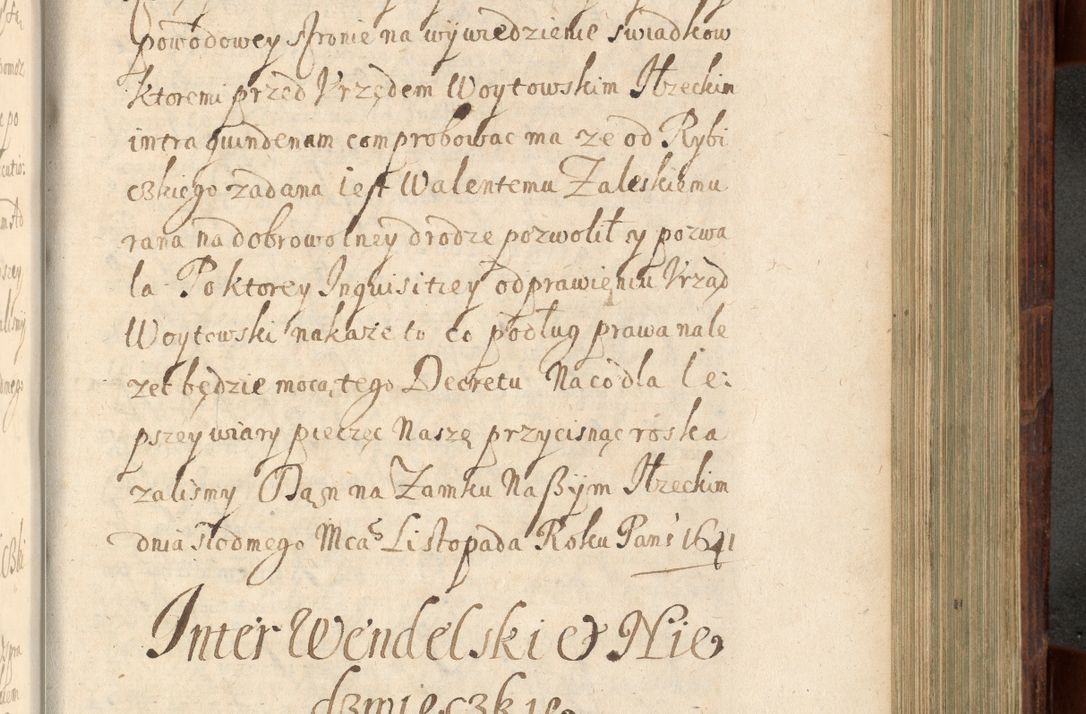 powodowey stronie na wywiedzienie swiadkow
ktoremi przed Vrzędem Woytowskim Iłzeckim
intra quindenam comprobowac ma ze od Rybi
czkiego zadana iest Walentemu Zaleskiemu
rana na dobrowolney drodze pozwolił y pozwa
la Po ktorey Inquisitiey odprawieniu Vrząd
Woytowski nakaze to co podług prawa nale
zec będzie mocą tego Decretu Na co dla le:
pszey wiary pieczęc Naszę przycisnąc roska
zalismy Dan na Zamku Naßym Iłzeckim
dnia siodmego Mca Listopada Roku Pans 1641
Inter Wendelski et Nie
dzwieczkie